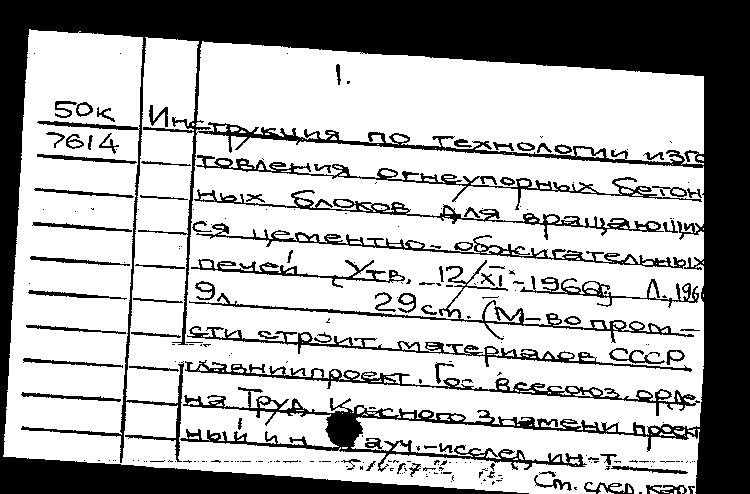 1.
50к Инструкция по технологии изго
7614 товления огнеупорных бетон-
ных блоков для вращающих
ся цементно-обжигательных
печей [Утв. 12/XI-1966г] Л., 1966
9л. 29 ст. (М-во пром-
сти строит. материалов СССР
Главниипроект. Гос. всесоюз. орде-
на Труд. Красного Знамени проект
ный и н ауч.-исслед. ин-т
Ст. след. карт